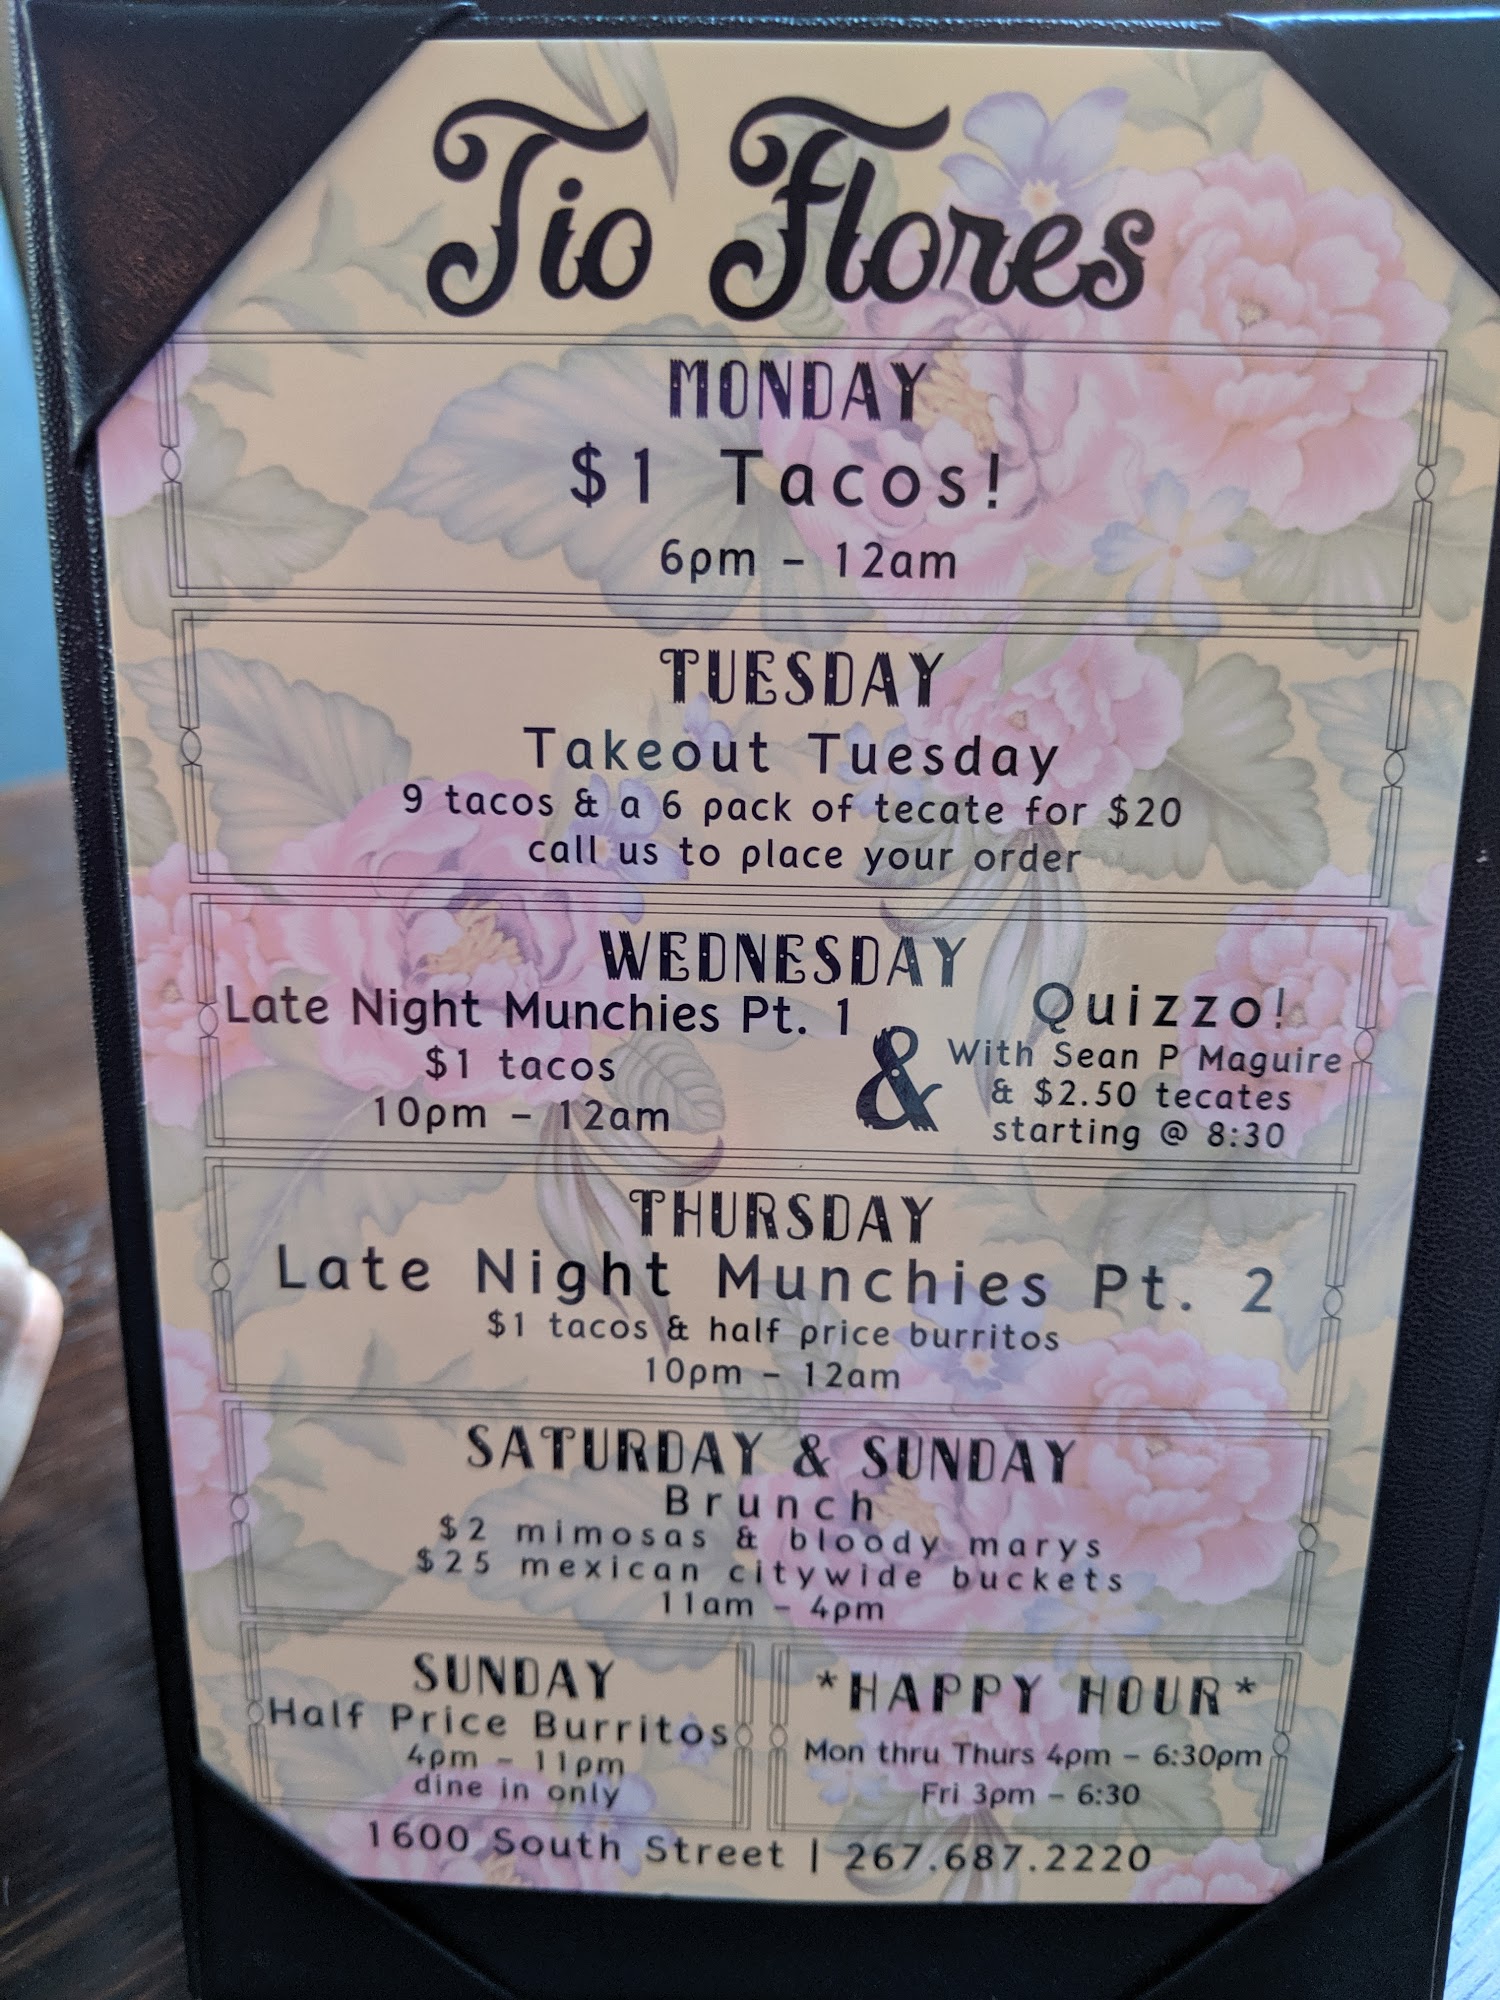 Tio Flores
MONDAY
$1 Tacos!
6pm - 12am
TUESDAY
Takeout Tuesday
9 tacos & a 6 pack of tecate for $20
call us to place your order
WEDNESDAY
Late Night Munchies Pt. 1
$1 tacos
10pm - 12am
&
Quizzo!
With Sean P Maguire
& $2.50 tecates
starting @ 8:30
THURSDAY
Late Night Munchies Pt. 2
$1 tacos & half price burritos
10pm - 12am
SATURDAY & SUNDAY
Brunch
$2 mimosas & bloody marys
$25 mexican citywide buckets
11am - 4pm
SUNDAY
Half Price Burritos
4pm - 11pm
dine in only
*HAPPY HOUR*
Mon thru Thurs 4pm - 6:30pm
Fri 3pm - 6:30
1600 South Street | 267.687.2220